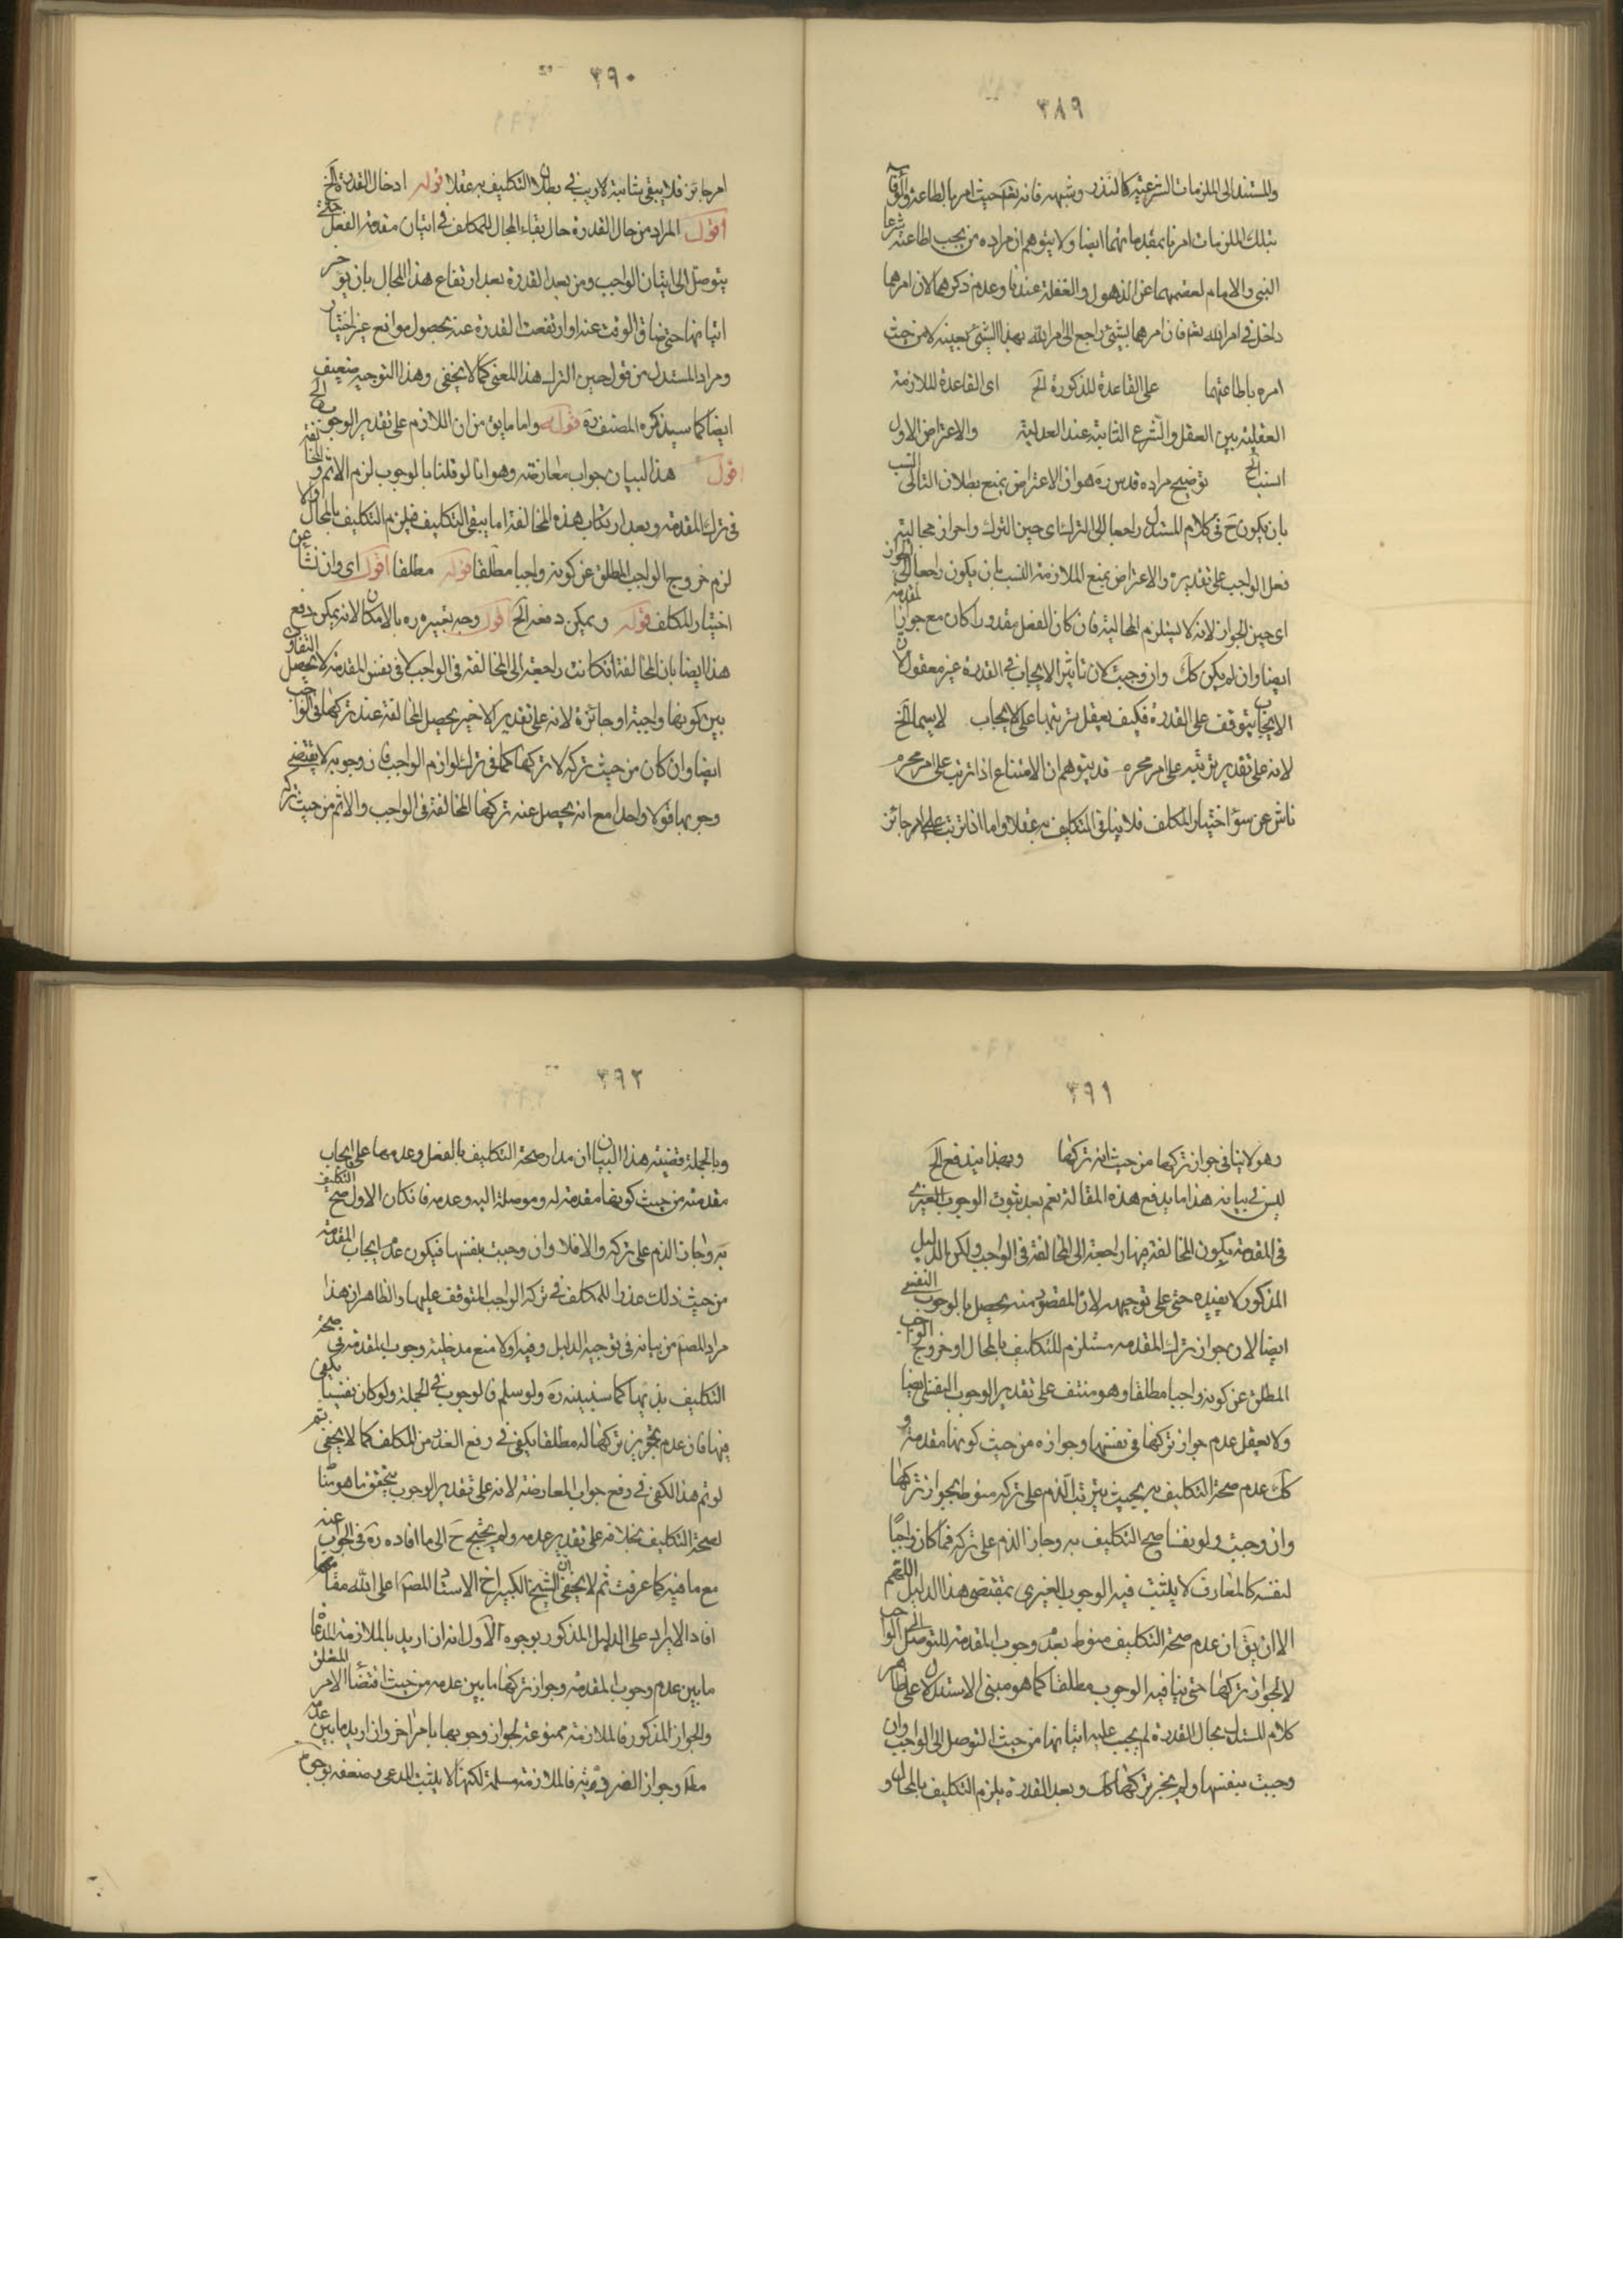 ٣٨٩
وللمستند الى الملزمات الشرعية كالنذر وشبهه فانه تعالى حيث امر بالطاعة والوفاء
بتلك الملزمات امر بمقدماتهما ايضا ولا يتوهم ان مراده من يجب اطاعته شرعا
النبى والامام لعصمتهما عن الذهول والغفلة عندنا وعدم ذكرهما لان امرهما
داخل فى امر الله تعالى فان امرهما بشيئ راجع الى امر الله بهذا الشيئ بعينه لا من حيث
امره باطاعتهما على القاعدة المذكورة الخ اى القاعدة الملازمة
العقلية بين العقل والشرع الثابتة عند العدلية والاعتراض الاول
انسب الخ توضيح مراده قدس ره هو ان الاعتراض بمنع بطلان التالى انسب
بان يكون ح فى كلام المستدل راجعا الى الترك اى حين الترك واحراز محالية
فعل الواجب على تقديره والاعتراض بمنع الملازمة انسب بان يكون راجعا الى الجواز
اى حين الجواز لانه لا يستلزم المحالية فان كان الفعل مقدورا كان مع جواز المقدمة
ايضا وان لم يكن كك وان وجبت لان تاثير الايجاب فى القدرة غير معقول لان
الايجاب يتوقف على القدرة فكيف يعقل ترتبها على الايجاب لا سيما الخ
لانه على تقدير ترتبه على امر محرم قد يتوهم ان الامتناع اذا ترتب على امر محرم
ناش عن سوء اختيار المكلف فلا ينافى التكليف به عقلا واما اذا ترتب على امر جائز
٣٩٠
امر جائز فلا يبقى شائبة لا ريب فى بطلان التكليف به عقلا قوله ادخال القدرة الخ
اقول المراد من حال القدرة حال بقاء المجال للمكلف فى اتيان مقدمة الفعل حتى
يتوصل الى اتيان الواجب ومن بعد القدرة بعد ارتفاع هذا المجال بان يؤخر
اتيانها حتى ضاق الوقت عنه او ارتفعت القدرة عنه بحصول موانع غير اختيار
ومراد المستدل من قوله حين الترك هذا المعنى كما لا يخفى وهذا التوجيه ضعيف
ايضا كما سيذكره المصنف ره قوله واما ما يق من ان اللازم على تقدير الوجوب الخ
اقول هذا لبيان جواب معارضته وهو انا لو قلنا بالوجوب لزم الاثم والمخالفة
فى ترك المقدمة وبعد ارتكاب هذه المخالفة اما يبقى التكليف فيلزم التكليف بالمحال والا
لزم خروج الواجب المطلق عن كونه واجبا مطلقا قوله مطلقا اقول اى وان نشا عن
اختيار المكلف قوله ويمكن دفعه الخ اقول وجه تعبيره ره بالامكان لانه يمكن دفع
هذا ايضا بان المخالفة اذا كانت راجعة الى المخالفة فى الواجب لا فى نفس المقدمة لا يحصل التفاوت
بين كونها واجبة او جائزة لانه على تقدير الاخير يحصل المخالفة عند تركها فى الواجب
ايضا وان كان من حيث تركه لا تركها كما فى ترك لوازم الواجب فان وجوبه لا يقتضى
وجوبها قولا واحدا مع انه يحصل عند تركها المخالفة فى الواجب والاثم من حيث تركه
٣٩١
وهو لا ينافى جواز تركها من حيث انه تركها وبهذا يندفع الخ
ليس فى بيانه هذا ما يدفع هذه المقالة نعم بعد ثبوت الوجوب الغيرى
فى المقدمة يكون المخالفة فيها راجعة الى المخالفة فى الواجب ولكن الدليل
المذكور لا يفيده حتى على توجيهه لان المقصود منه يحصل بالوجوب النفسى
ايضا لان جواز ترك المقدمة مستلزم للتكليف بالمحال او خروج الواجب
المطلق عن كونه واجبا مطلقا وهو منتف على تقدير الوجوب النفسى ايضا
ولا يعقل عدم جواز تركها فى نفسها وجوازه من حيث كونها مقدمة و
كك عدم صحة التكليف به بحيث يترتب الذم على تركه منوط بجواز تركها
وان وجبت ولو نفسا صح التكليف به وجاز الذم على تركه فما كان واجبا
لنفسه كالمعارف لا يثبت فيه الوجوب الغيرى بمقتضى هذا الدليل اللهم
الا ان يق ان عدم صحة التكليف منوط بعدم وجوب المقدمة للتوصل الى الواجب
لا لجواز تركها حتى ينافيه الوجوب مطلقا كما هو مبنى الاستدلال على ظاهر
كلام المستدل بحال القدرة لم يجب عليه اتيانها من حيث التوصل الى الواجب وان
وجبت بنفسها ولم يجز تركها كك وبعد القدرة يلزم التكليف بالمحال و
٣٩٢
وبالجملة قضية هذا البيان ان مدار صحة التكليف بالفعل وعدمها على ايجاب
مقدمته من حيث كونها مقدمة له وموصلة اليه وعدمه فان كان الاول صح التكليف
به وجاز الذم على تركه والا فلا وان وجبت بنفسها فيكون عدم ايجاب المقدمة
من حيث ذلك عذرا للمكلف فى تركه الواجب المتوقف عليها والظاهر ان هذا
مراد المصم من بيانه فى توجيه الدليل وفيه اولا منع مدخلية وجوب المقدمة فى صحة
التكليف بذيها كما سنبينه ره ولو سلم فالوجوب فى الجملة ولو كان نفسيا يكفى
فيها فان عدم تجويز تركها له مطلقا يكفى فى رفع العذر من المكلف كما لا يخفى ثم
لو تم هذا لكفى فى دفع جواب المعارضة لانه على تقدير الوجوب يتحقق ما هو منشا
لصحة التكليف بخلافه على تقدير عدمه ولم يحتج ح الى ما افاده ره فى الجواب عنه
مع ما فيه كما عرفت ثم لا يخفى ان الشيخ الكبير اخ الاستاد المصم اعلى الله مقامهما
افاد الايراد على الدليل المذكور بوجوه الاول انه ان اريد بالملازمة المدعاة
ما بين عدم وجوب المقدمة وجواز تركها ما بين عدمه من حيث اقتضاء الامر المطلق
والجواز المذكور فالملازمة ممنوعة لجواز وجوبها بامر اخر وان اريد ما بين عدمه
مط وجواز الضرورية فالملازمة مسلمة لكنها لا يثبت المدعى وضعفه بوجه